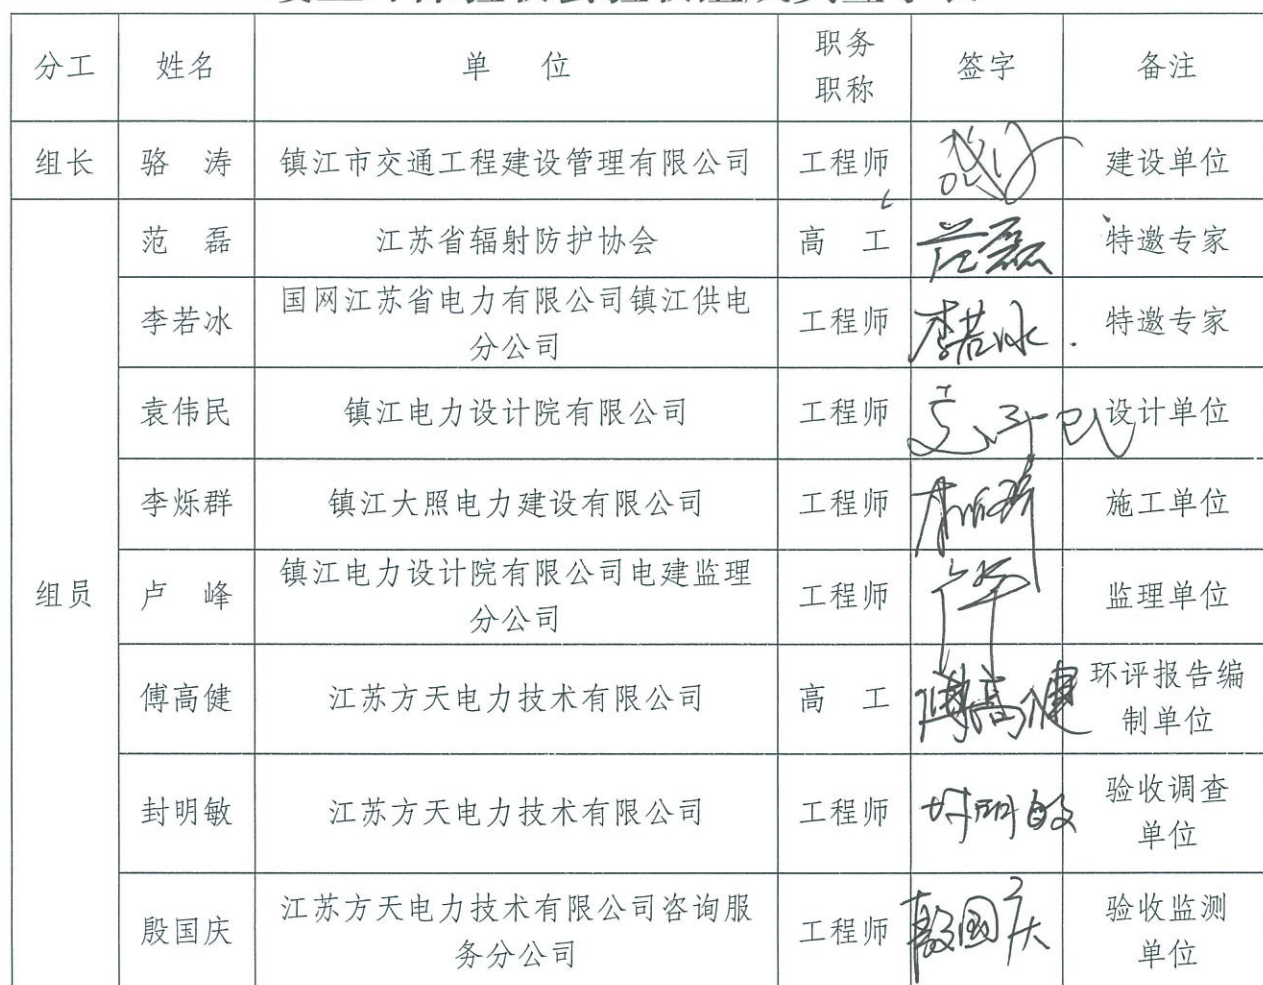 分工 姓名 单 位 职务职称 签字 备注
组长 骆 涛 镇江市交通工程建设管理有限公司 工程师 建设单位
组员
范 磊 江苏省辐射防护协会 高 工 范磊 特邀专家
李若冰 国网江苏省电力有限公司镇江供电
分公司 工程师 李若冰 特邀专家
袁伟民 镇江电力设计院有限公司 工程师 设计单位
李烁群 镇江大照电力建设有限公司 工程师 施工单位
卢 峰 镇江电力设计院有限公司电建监理
分公司 工程师 监理单位
傅高健 江苏方天电力技术有限公司 高 工 傅高健 环评报告编
制单位
封明敏 江苏方天电力技术有限公司 工程师 封明敏 验收调查
单位
殷国庆 江苏方天电力技术有限公司咨询服
务分公司 工程师 殷國庆 验收监测
单位